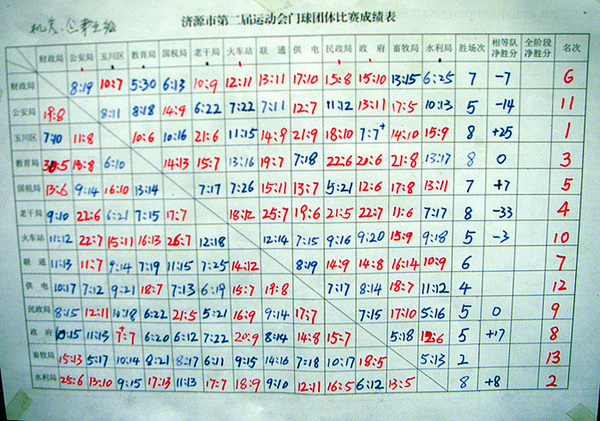 机关.企事业组
济源市第二届运动会门球团体比赛成绩表
财政局 公安局 玉川区 教育局 国税局 老干局 火车站 联通 供电 民政局 政府 畜牧局 水利局 胜场次 相等队净胜分 全阶段净胜分 名次
财政局 8:19 10:7 5:30 6:13 10:9 12:11 13:11 17:10 15:8 15:10 13:15 6:25 7 -7 6
公安局 19:8 8:11 8:18 14:9 6:22 7:22 7:11 12:7 11:12 13:11 17:5 10:13 5 -14 11
玉川区 7:10 11:8 10:6 10:16 21:6 11:15 14:9 21:9 18:10 7:7+ 14:10 15:9 8 +25 1
教育局 30:5 18:8 6:10 14:13 15:7 13:16 19:7 7:18 22:6 20:6 21:8 13:17 8 0 3
国税局 13:6 9:14 16:10 13:14 7:17 7:26 15:11 13:7 5:21 12:6 17:8 13:11 7 +7 5
老干局 9:10 22:6 6:21 7:15 17:7 18:12 25:7 19:6 21:5 22:7 11:6 7:17 8 -33 4
火车站 11:12 22:7 15:11 16:13 26:7 12:18 12:14 7:15 9:16 9:20 15:9 9:18 5 -3 10
联通 11:13 11:7 9:14 7:19 11:15 7:25 14:12 8:19 14:9 14:8 16:14 10:9 6 7
供电 10:17 7:12 9:21 18:7 7:13 6:19 15:7 19:8 7:17 8:14 18:7 11:12 4 12
民政局 8:15 12:11 10:18 6:22 21:5 5:21 16:9 9:14 17:7 7:15 17:10 5:16 5 0 9
政府 10:15 11:13 7:7 6:20 6:12 7:22 20:9 8:14 14:8 15:7 5:18 12:6 5 +17 8
畜牧局 15:13 5:17 10:14 8:21 8:17 6:11 9:15 14:16 7:18 10:17 18:5 5:13 2 13
水利局 25:6 13:10 9:15 17:13 11:13 17:7 18:9 9:10 12:11 16:5 6:12 13:5 8 +8 2